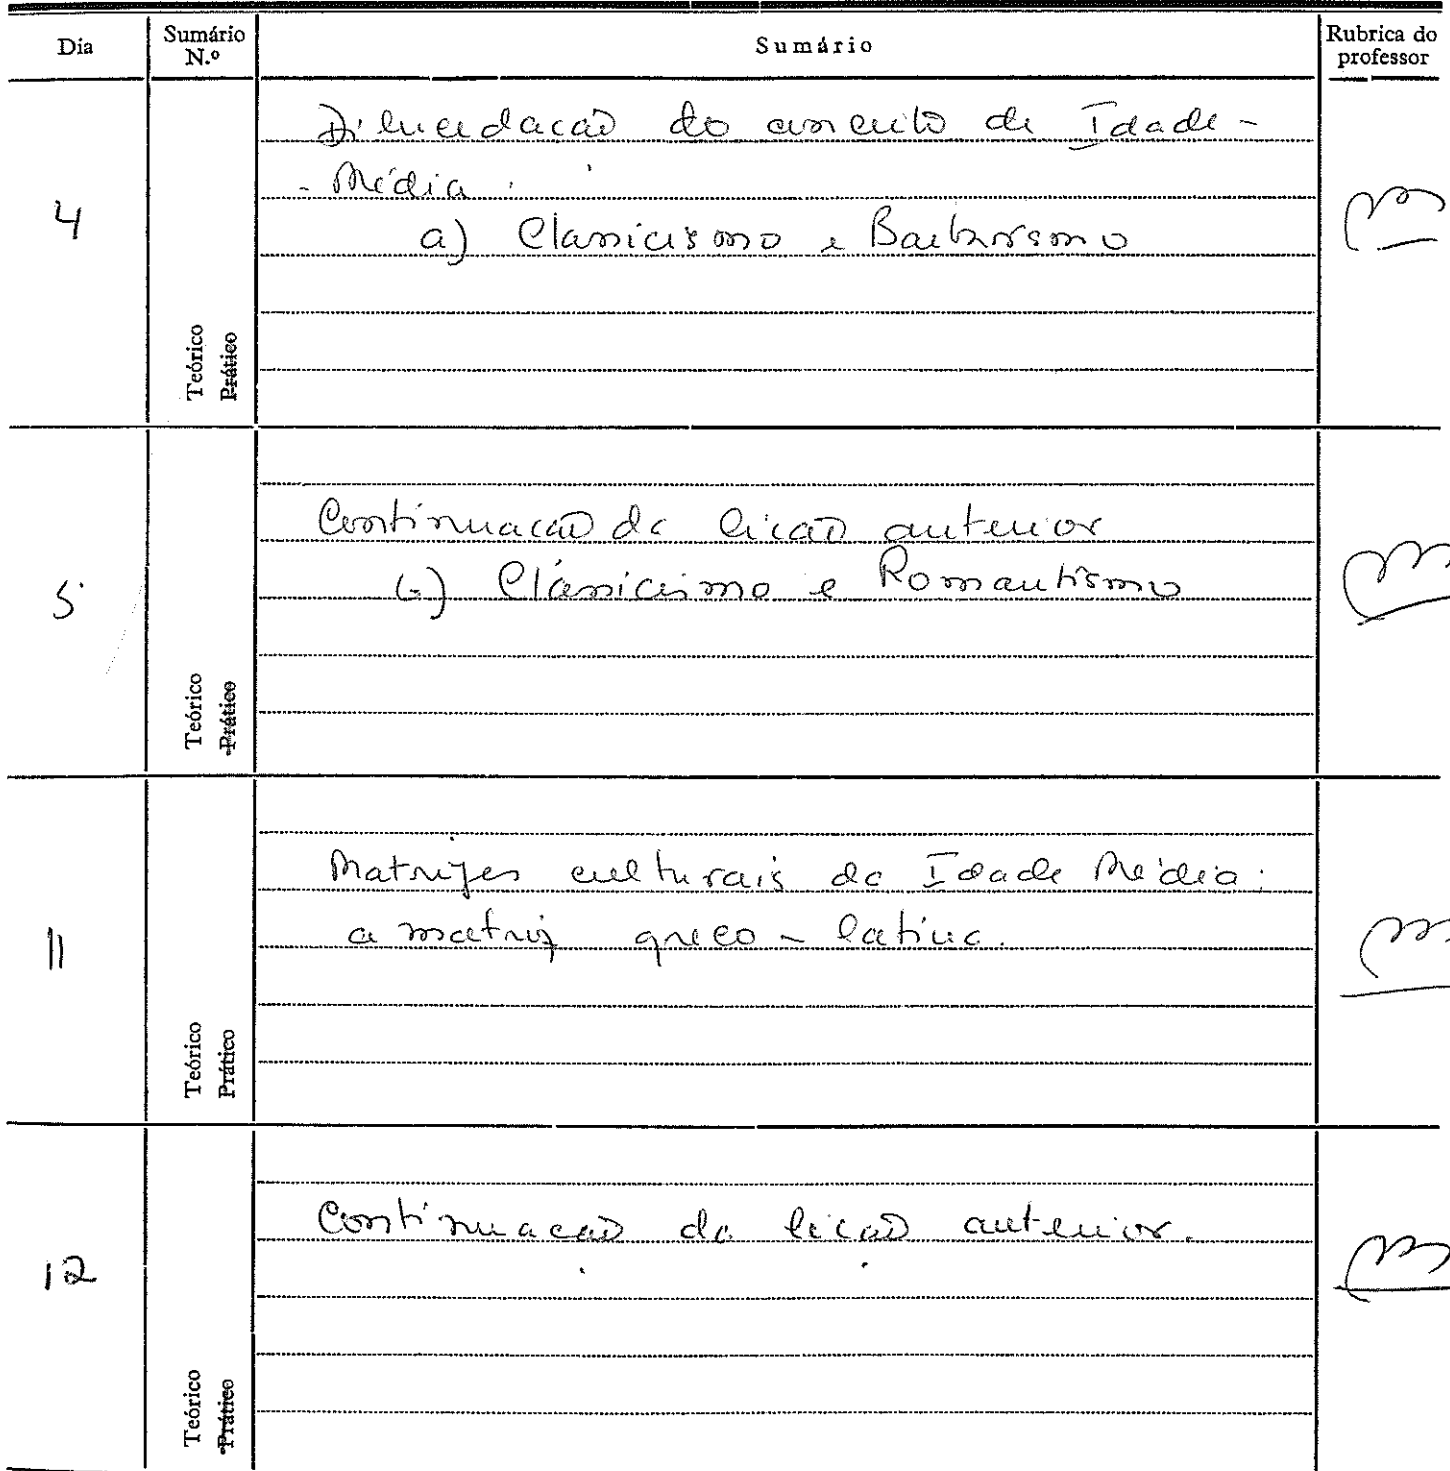 Dia
Sumário N.º
Sumário
Rubrica do professor
4
Dilucidação do conceito de Idade-
-Média:
a) Classicismo e Barbarismo
Teórico
Prático
5
Continuação da lição anterior
b) Classicismo e Romantismo
Teórico
Prático
11
Matrizes culturais da Idade Média:
a matriz greco-latina.
Teórico
Prático
12
Continuação da lição anterior.
Teórico
Prático